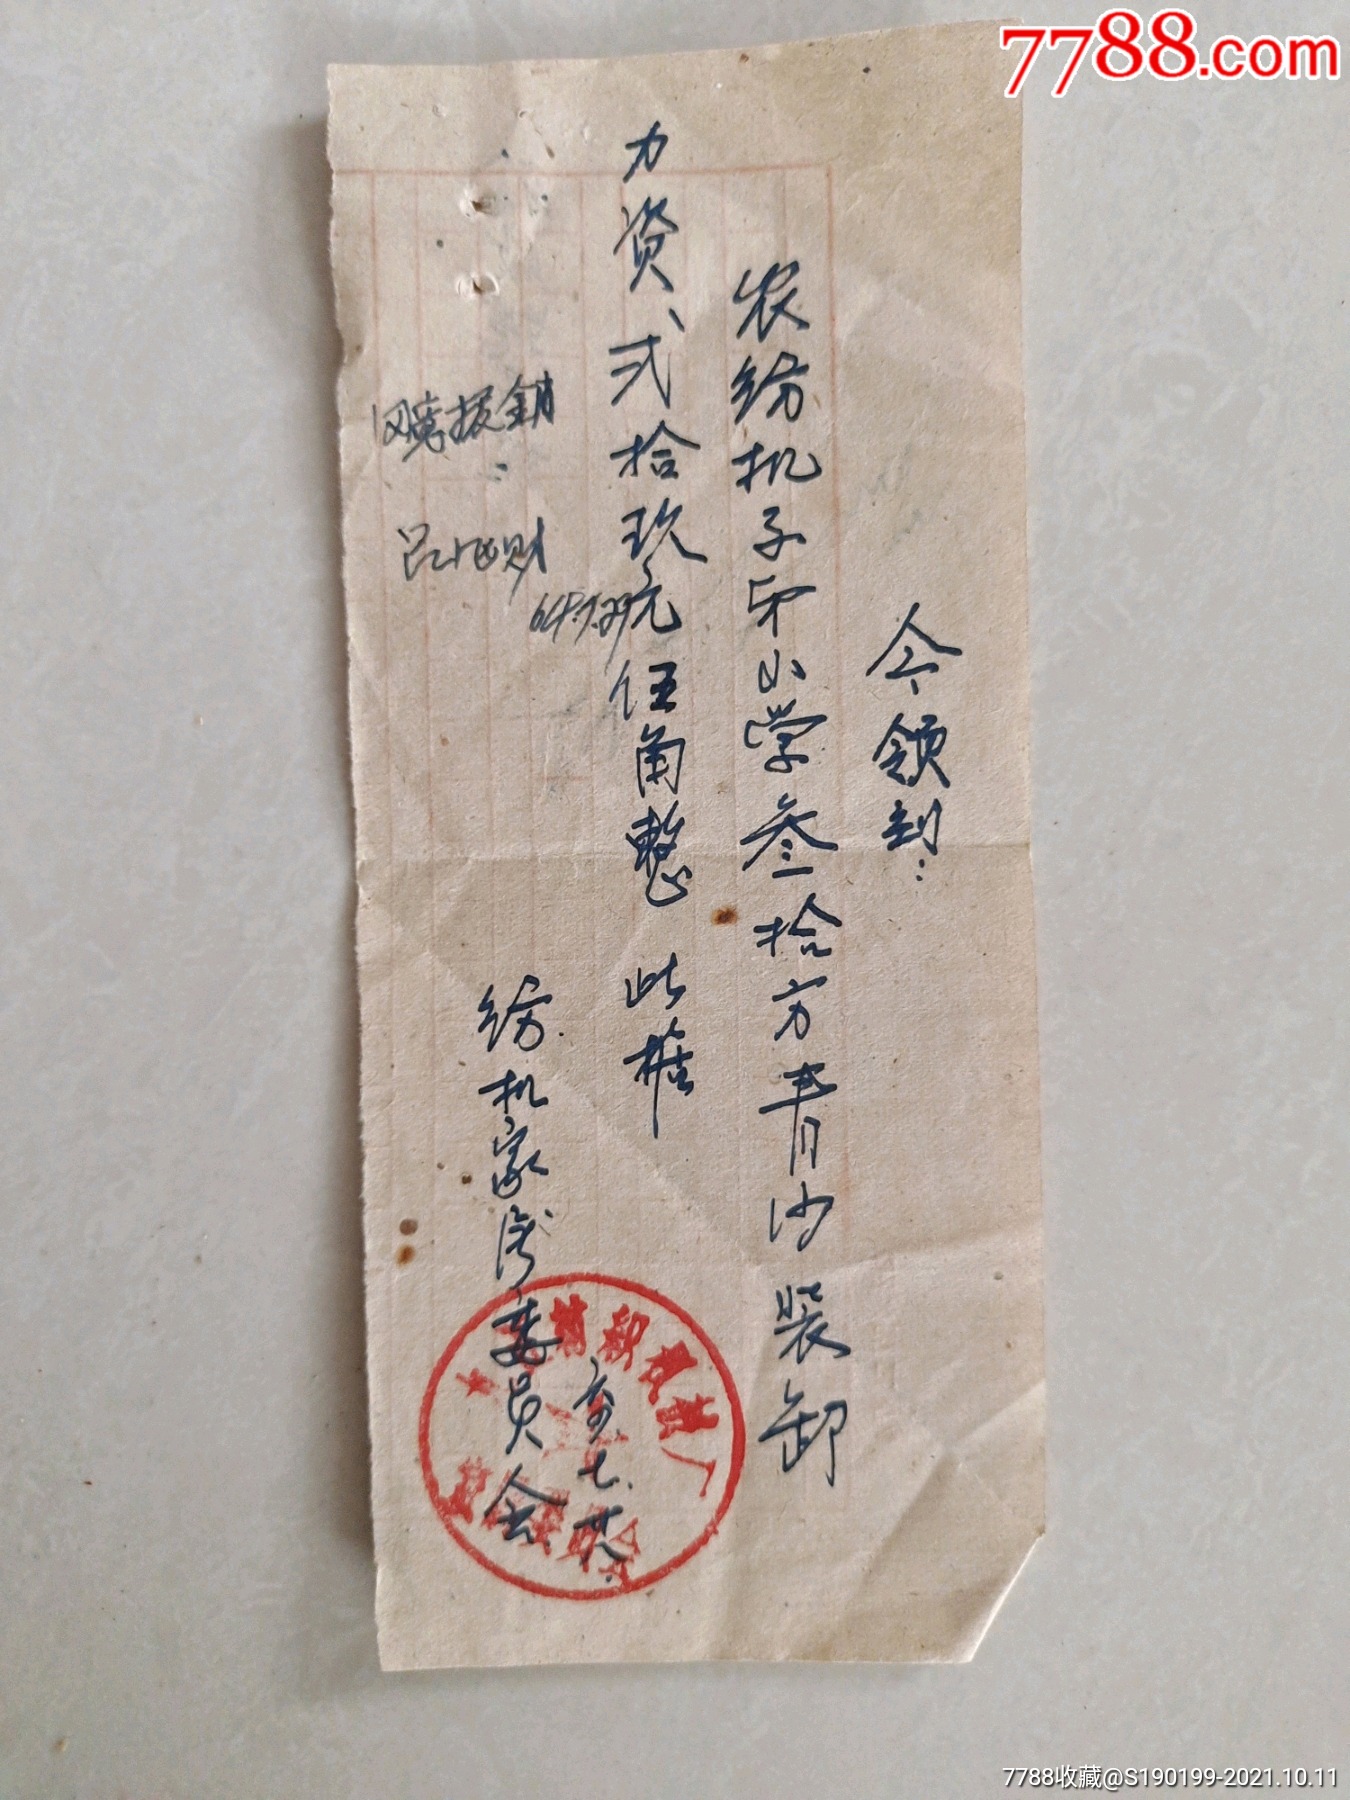 7788.com
今领到:
农纺机子弟小学叁拾方青沙装卸
力资、弍拾玖元伍角整 此据
纺机家属委员会
六四.七.廿九
报销
64.7.29
纺织机械厂
7788收藏@S190199-2021.10.11